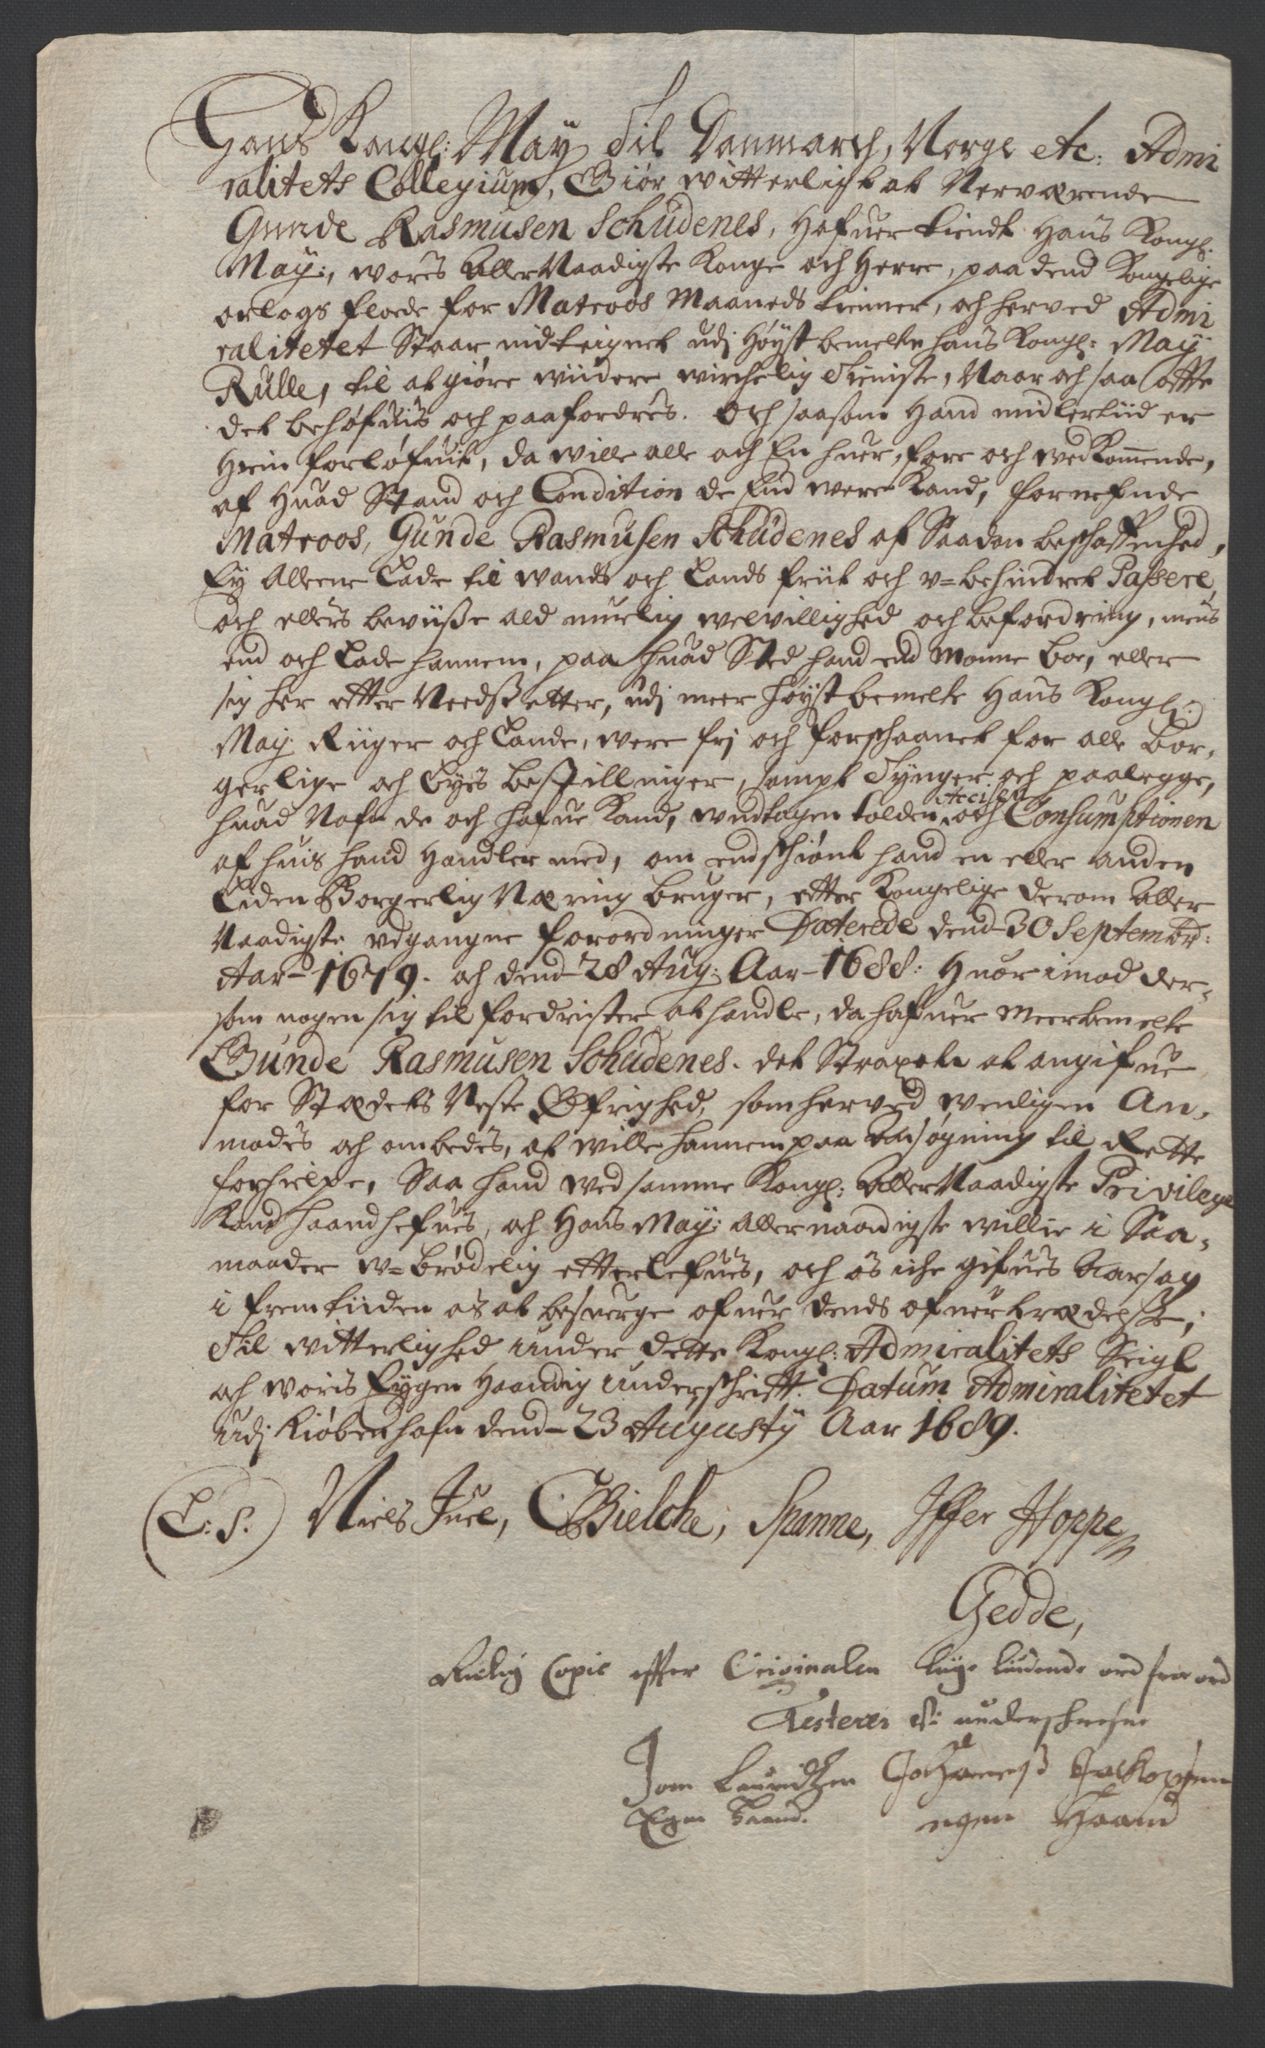 Hans Kongl: May Til Danmarch, Norge etc: Admi
ralitets Collegium, Giør witterligt at Nerværende
Gunde Rasmusen Schudenes, hafuer tiendt Hans Kongl:
May:, wores AllerNaadigste Konge och Herre, paa dend Kongelige
orlogs flode for Matroos Maaneds tienner, och herved Admi
ralitetet Staar indteignet udj Høyst bemelte hans Kongl: May:
Rulle, til at giøre wiidere wirchelig Tieniste, Naar och saa offte
det behøfuis och paafordres. Och saasom Hand midlertiid er
Hiem forløfuit, da wille alle och En huer, fore och wedkommende,
af Huad Stand och Condition de End were kand, fornefnde
Matroos, Gunde Rasmusen Schudenes af Saadan beschaffenhed,
Ey Alleene Lade til wands och Lands friit och v=behindret Passere,
och ellers beviiße ald muelig welvillighed och befordring, mens
end och Lade hannem, paa huad Sted hand end Monne boe, eller
sig her effter Nedsetter, udj meer høyst bemelte Hans Kongl:
May Riiger och Lande, were frj och forschaanet for alle Bor,
gerlige och Byes bestillninger, sampt Tynger och paalegge,
huad Nafn de och hafue kand, undtagen tolden, Accisen och Consumptionen
af huis hand Handler med, om endschiønt hand en eller anden
Liden Borgerlig Næring bruger, effter Kongelige derom Aller
Naadigste udgangne forordninger Daterede dend 30 Septembr:
Aar 1679. och dend 28 Aug: Aar 1688: Huor imod der,
som nogen sig til fordrister at handle, da hafuer Meerbemelte
Gunde Rasmusen Schudenes. det Strax at angifue
for Stædets Neste Øfrighed, som herved wenligen An,
modes och ombedes, at wille hannem paa Ansøgning til Rette
forhielpe, Saa hand ved samme Kongl: AllerNaadigste Privilege
Kand haandhefues, och Hans May: Allernaadigste willie i Saa,
maader v=brødelig effterlefues, och os iche gifues Aarsag
i fremtiiden os at besuerge ofuer dends ofuertrædelse;
Til witterlighed under dette Kongl: Admiralitets Seigl
och woris Eygen Haandig underschrifft. Datum Admiralitetet
udj Kiøbenhafn dend 23 Augusty Aar 1689.
L: S. Niels Juel, CBielche, Spanne, Iffer Hoppe
Gedde,
Rictig Copie effter Originalen liige liudende ord fra ord
Testerer Vi underschrefne
Joen Lauridtzen Johannes Jackopsen
Egen Haand. egen Haand